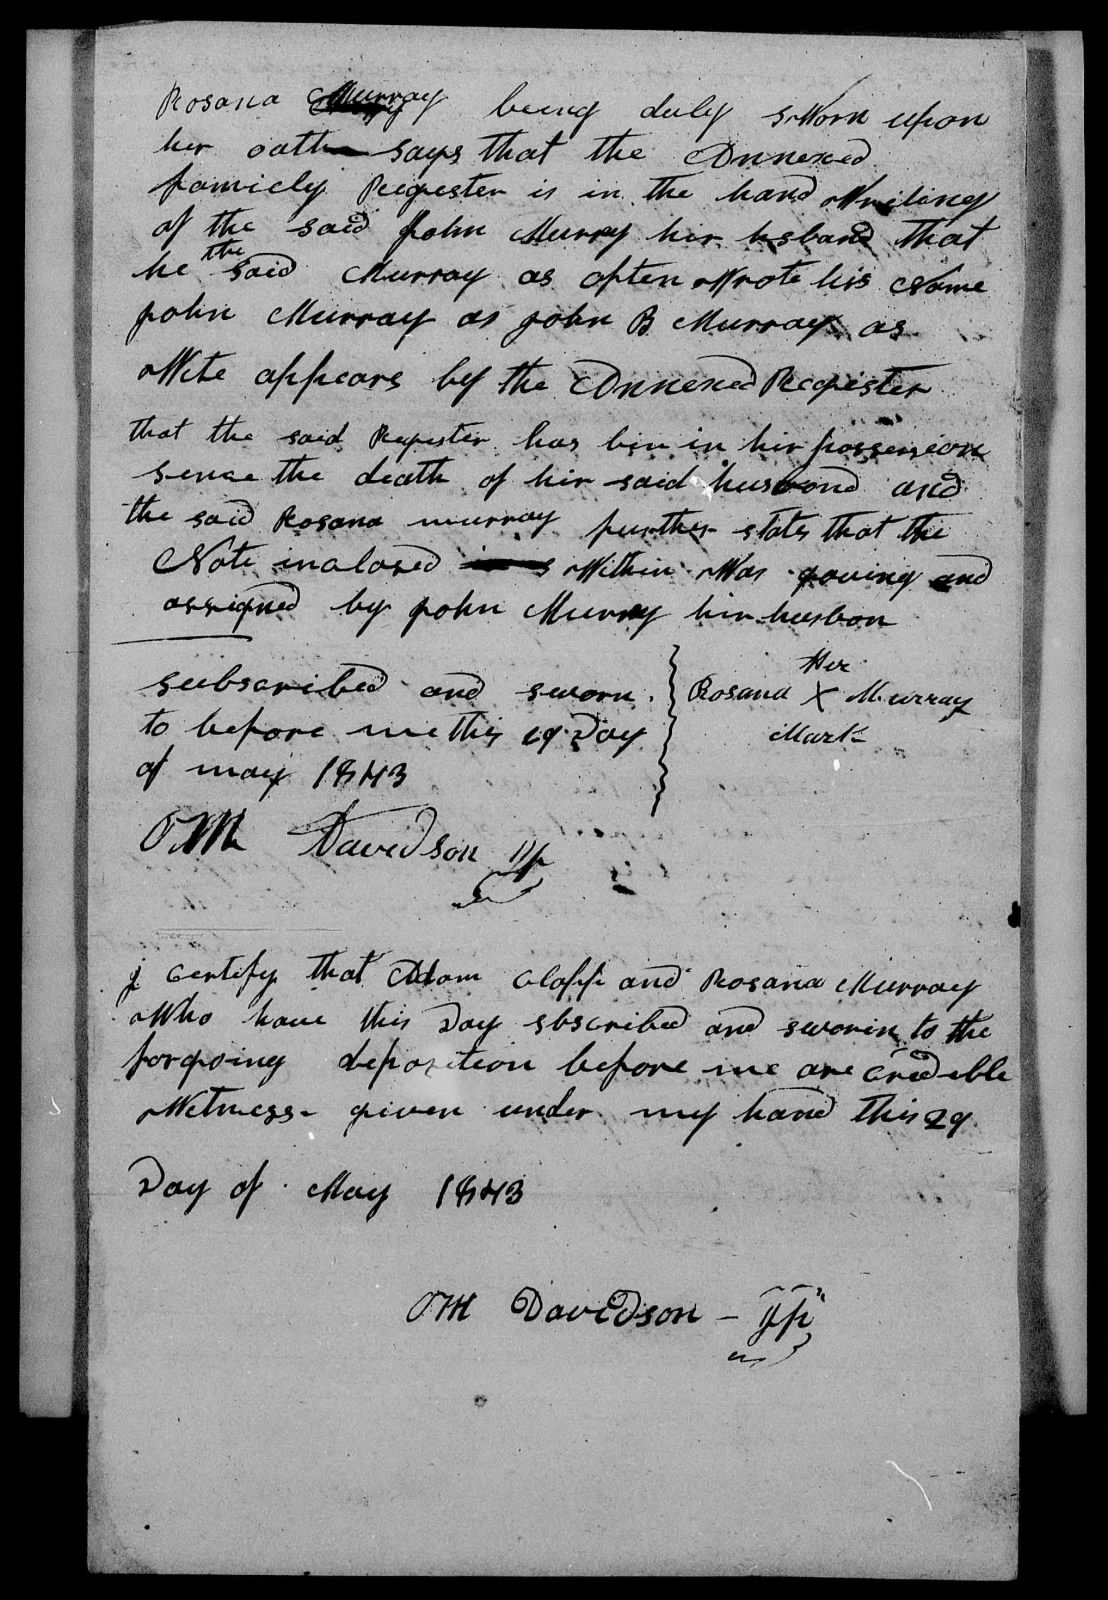 Rosana Murray being duly sworn upon
her oath says that the Annexed
famiely Regester is in the hand Writing
of the said John Murry her hsband that
he the said Murray as often Wrote his Name
John Murray as John B Murray as
Wite appears by the Annexed Regester
that the said Regester has bin in hir possession
sence the death of hir said husbond and
the said Rosana murray further states that the
Note inclosed Within Was goving and
assigned by John Murry hir husbon
subscribed and sworn
to before me this 29 Day
of may 1843
Her
Rosana X Murray
Mark
Davidson JP
I certify that Adam Clapp and Rosana Murray
Who have this Day sbscribed and sworin to the
forgoing deposition before me are credeble
Wetness given under my hand this 29
Day of May 1843
Davidson JP